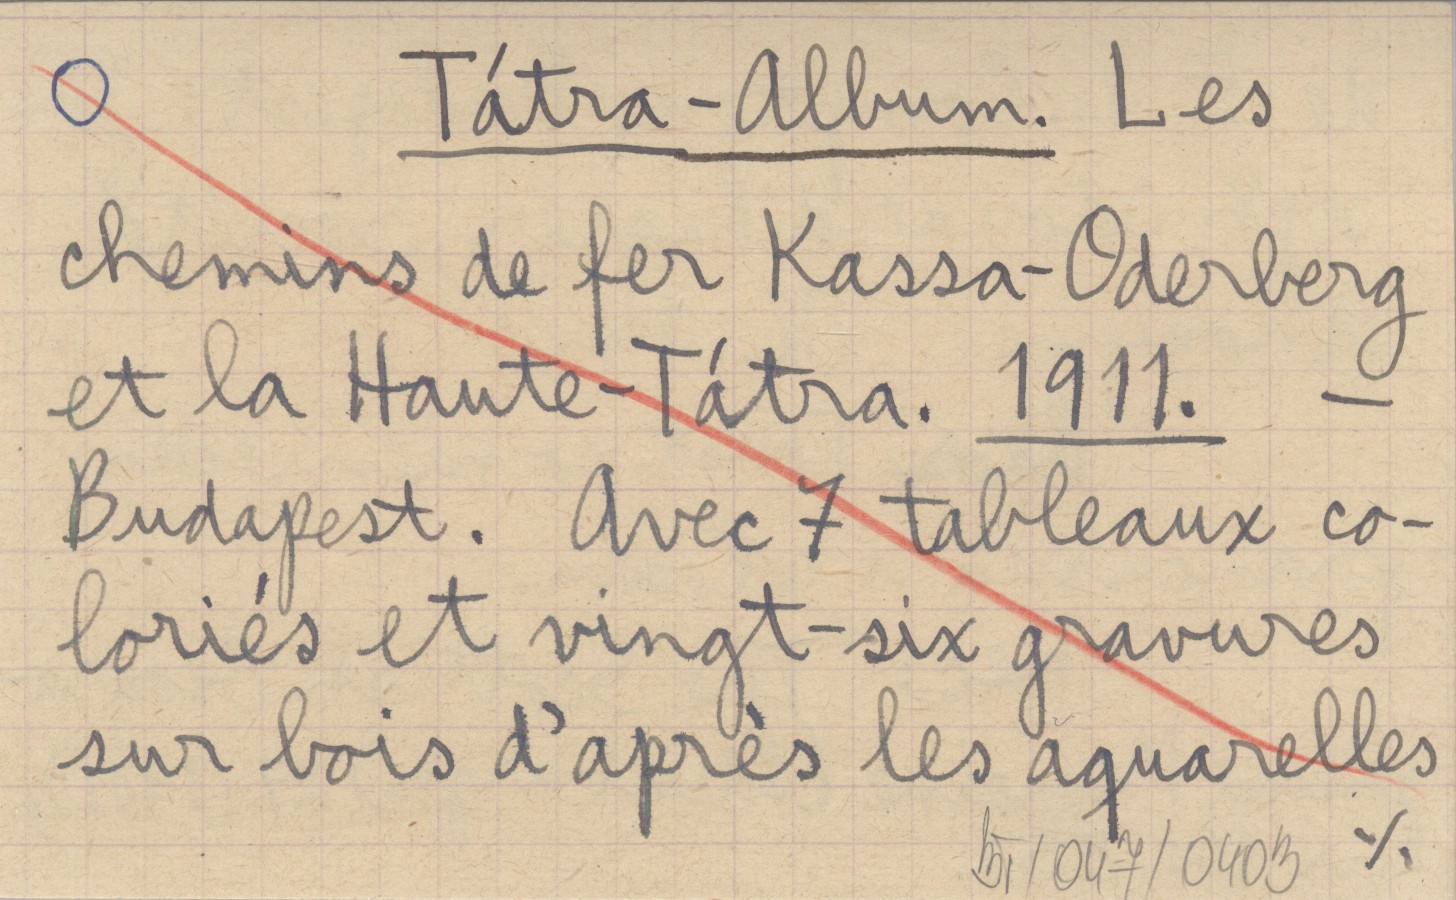 Tátra-Album. Les
chemins de fer Kassa-Oderberg
et la Haute-Tátra. 1911. —
Budapest. Avec 7 tableaux co-
loriés et vingt-six gravures
sur bois d'après les aquarelles
/047/0403 ./.